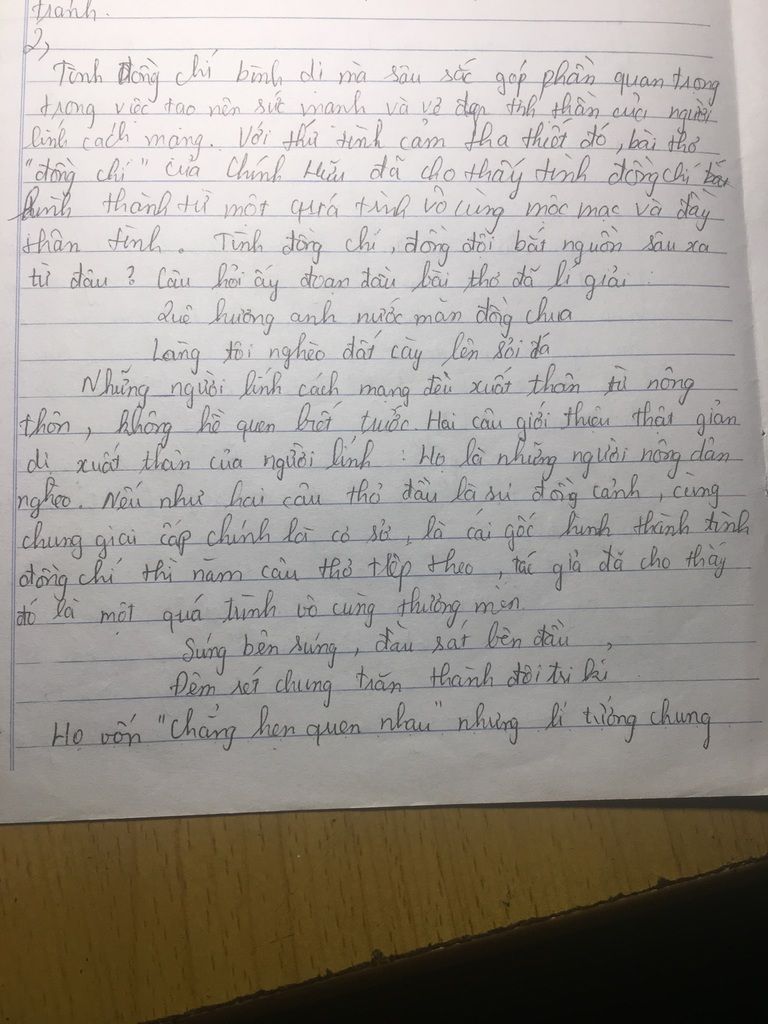 tranh.
2,
Tình đồng chí bình dị mà sâu sắc góp phần quan trọng
trong việc tạo nên sức mạnh và vẻ đẹp tinh thần của người
lính cách mạng. Với thứ tình cảm tha thiết đó, bài thơ
"đồng chí" của Chính Hữu đã cho thấy tình đồng chí
hình thành từ một quá trình vô cùng mộc mạc và đầy
thân tình. Tình đồng chí, đồng đội bắt nguồn sâu xa
từ đâu? Câu hỏi ấy đoạn đầu bài thơ đã lí giải:
Quê hương anh nước mặn đồng chua
Làng tôi nghèo đất cày lên sỏi đá
Những người lính cách mạng đều xuất thân từ nông
thôn, không hề quen biết trước. Hai câu giới thiệu thật giản
dị xuất thân của người lính: Họ là những người nông dân
nghèo. Nếu như hai câu thơ đầu là sự đồng cảnh, cùng
chung giai cấp chính là cơ sở, là cái gốc hình thành tình
đồng chí thì năm câu thơ tiếp theo, tác giả đã cho thấy
đó là một quá trình vô cùng thương mến.
Súng bên súng, đầu sát bên đầu,
Đêm rét chung trăn thành đôi tri kỉ
Họ vốn "Chẳng hẹn quen nhau" nhưng lí tưởng chung